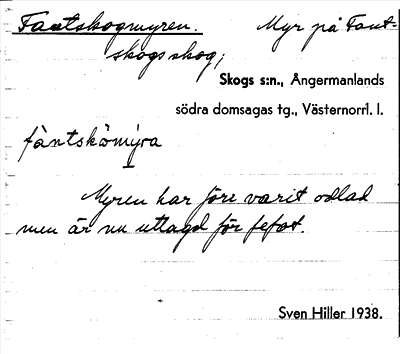 Fantskogmyren. Myr på Fant-
skogs skog,
Skogs s:n., Ångermanlands
södra domsagas tg., Västernorrl. l.
fàntskômýra
Myren har före varit odlad
men är nu utlagd för fefot.
Sven Hiller 1938.